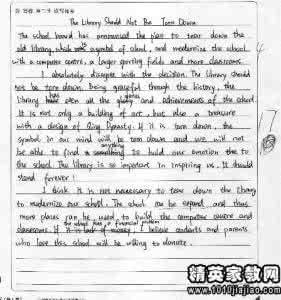 The Library Should Not Be Torn Down
The school board has announced the plan to tear down the
old library, which is a symbol of school, and modernize the school
with a computer centre, a larger sporting fields and more classrooms.
I absolutely disagree with the decision. The library should
not be torn down. being graceful through the history, the
library has seen all the glories and achievements of the school.
It is not only a building of art, but also a treasure
with a design of Qing Dynasty. If it is torn down, the
symbol in our mind will be torn down and we will not
be able to find something to hold our emotion due to
the school. The library is so important in inspiring us. It should
stand forever!
I think it is not necessary to tear down the library
to modernize our school. The school can be expand, and thus
more places can be used to build the computer centre and
the school has a financial problem
classrooms. If it is lack of money, I believe students and parents
who love this school will be willing to donate.
精英家教网
www.1010jiajiao.com